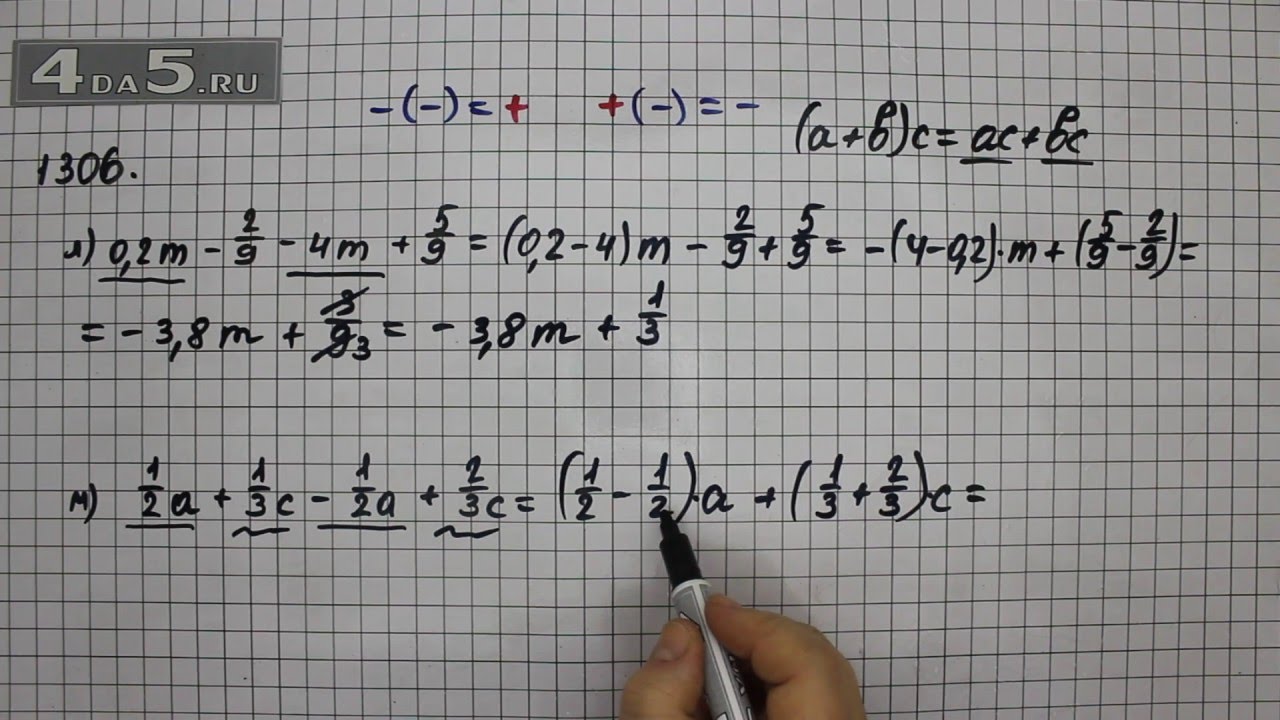 4DA5.RU
-(-)=+ +(-)=- (a+b)c=ac+bc
1306.
л) 0,2m - 2/9 - 4m + 5/9 = (0,2-4)m - 2/9 + 5/9 = -(4-0,2)·m + (5/9 - 2/9) =
= -3,8m + 3/9 3 = -3,8m + 1/3
м) 1/2a + 1/3c - 1/2a + 2/3c = (1/2 - 1/2)·a + (1/3 + 2/3)c =